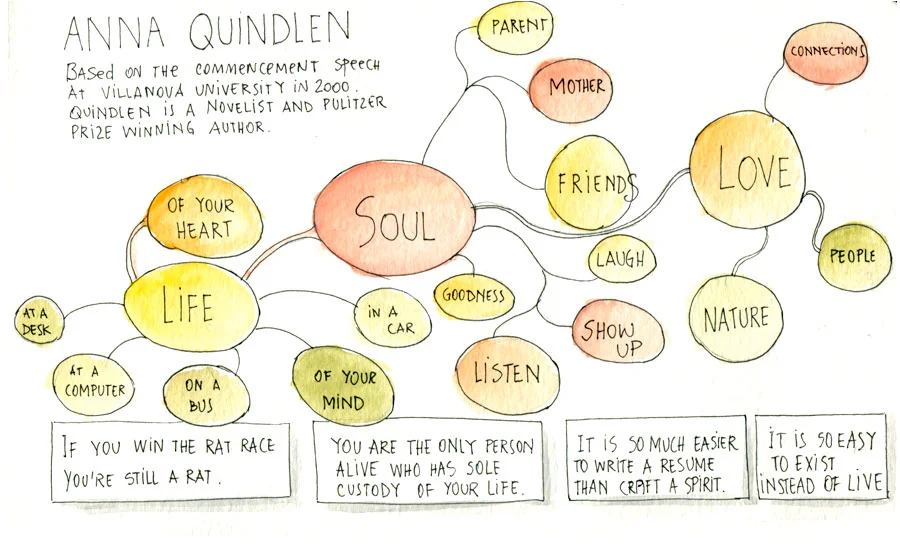 ANNA QUINDLEN
BASED ON THE COMMENCEMENT SPEECH
AT VILLANOVA UNIVERSITY IN 2000.
QUINDLEN IS A NOVELIST AND PULITZER
PRIZE WINNING AUTHOR.
PARENT
MOTHER
FRIENDS
CONNECTIONS
LOVE
PEOPLE
NATURE
SOUL
OF YOUR
HEART
LIFE
AT A
DESK
AT A
COMPUTER
ON A
BUS
OF YOUR
MIND
IN A
CAR
GOODNESS
LAUGH
SHOW
UP
LISTEN
IF YOU WIN THE RAT RACE
YOU'RE STILL A RAT.
YOU ARE THE ONLY PERSON
ALIVE WHO HAS SOLE
CUSTODY OF YOUR LIFE.
IT IS SO MUCH EASIER
TO WRITE A RESUME
THAN CRAFT A SPIRIT.
IT IS SO EASY
TO EXIST
INSTEAD OF LIVE